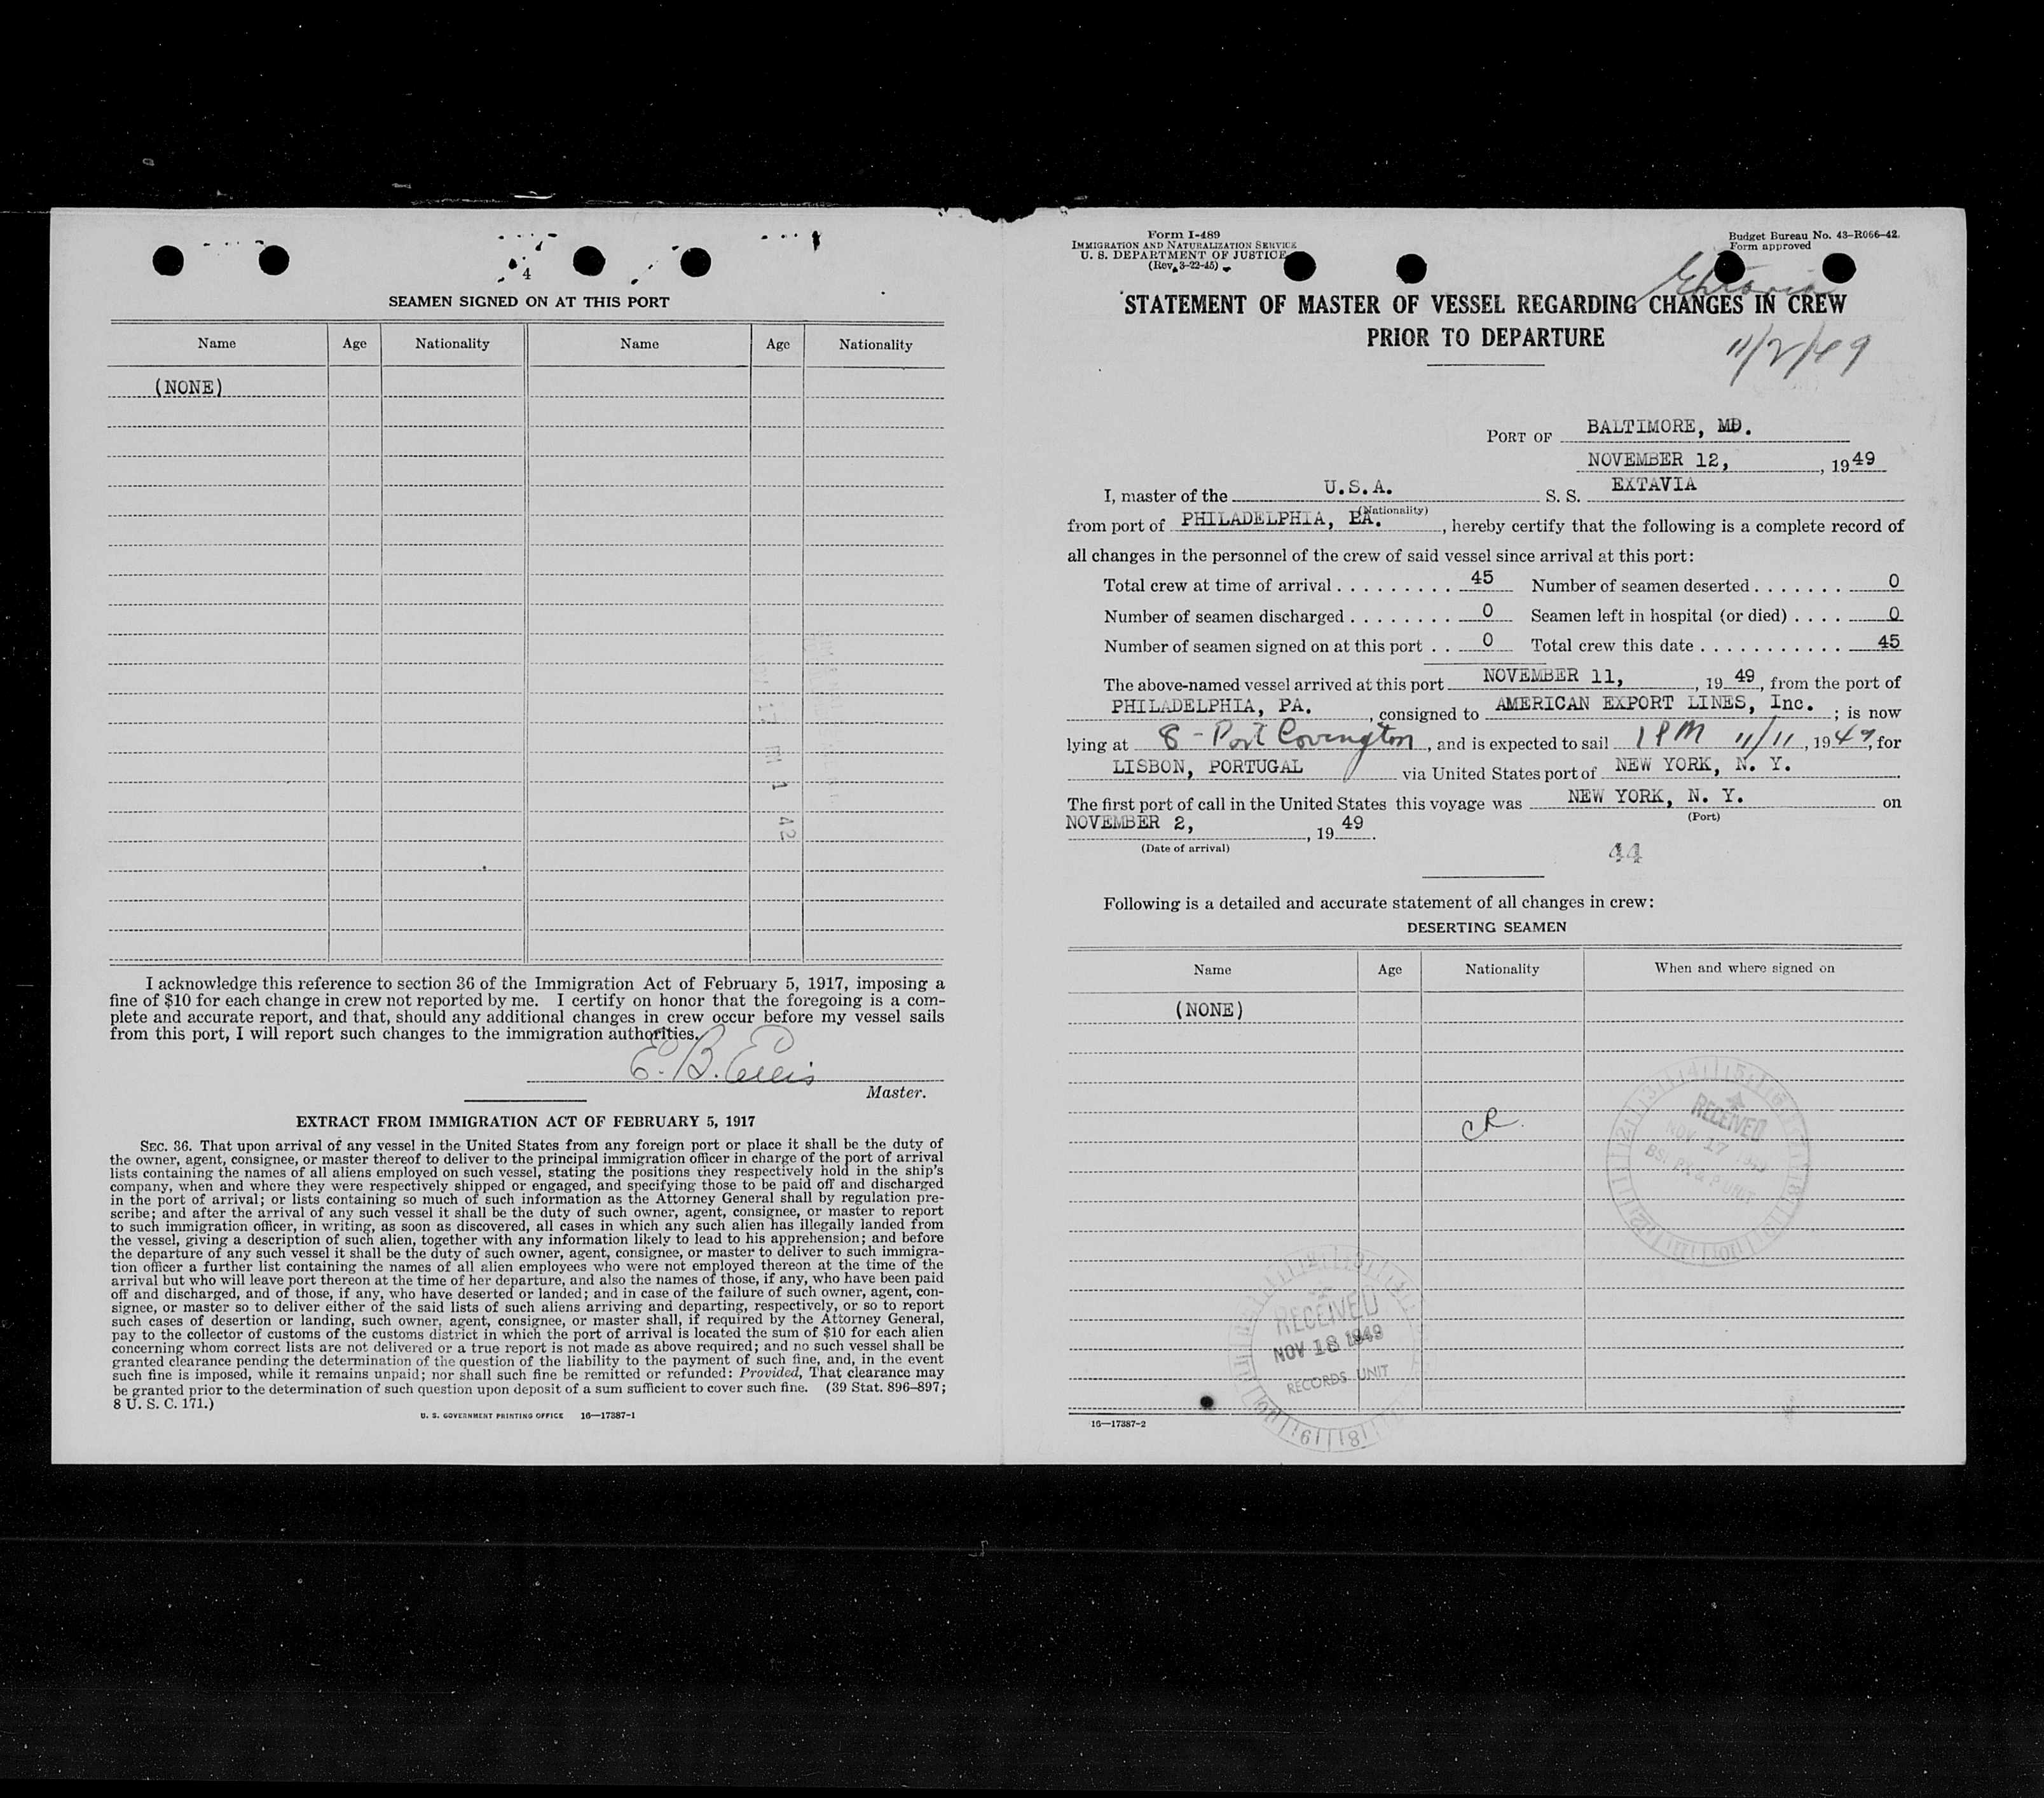 4
SEAMEN SIGNED ON AT THIS PORT
Name Age Nationality Name Age Nationality
(NONE)
I acknowledge this reference to section 36 of the Immigration Act of February 5, 1917, imposing a
fine of $10 for each change in crew not reported by me. I certify on honor that the foregoing is a com-
plete and accurate report, and that, should any additional changes in crew occur before my vessel sails
from this port, I will report such changes to the immigration authorities.
E. B. Ellis
Master.
EXTRACT FROM IMMIGRATION ACT OF FEBRUARY 5, 1917
SEC. 36. That upon arrival of any vessel in the United States from any foreign port or place it shall be the duty of
the owner, agent, consignee, or master thereof to deliver to the principal immigration officer in charge of the port of arrival
lists containing the names of all aliens employed on such vessel, stating the positions they respectively hold in the ship's
company, when and where they were respectively shipped or engaged, and specifying those to be paid off and discharged
in the port of arrival; or lists containing so much of such information as the Attorney General shall by regulation pre-
scribe; and after the arrival of any such vessel it shall be the duty of such owner, agent, consignee, or master to report
to such immigration officer, in writing, as soon as discovered, all cases in which any such alien has illegally landed from
the vessel, giving a description of such alien, together with any information likely to lead to his apprehension; and before
the departure of any such vessel it shall be the duty of such owner, agent, consignee, or master to deliver to such immigra-
tion officer a further list containing the names of all alien employees who were not employed thereon at the time of the
arrival but who will leave port thereon at the time of her departure, and also the names of those, if any, who have been paid
off and discharged, and of those, if any, who have deserted or landed; and in case of the failure of such owner, agent, con-
signee, or master so to deliver either of the said lists of such aliens arriving and departing, respectively, or so to report
such cases of desertion or landing, such owner, agent, consignee, or master shall, if required by the Attorney General,
pay to the collector of customs of the customs district in which the port of arrival is located the sum of $10 for each alien
concerning whom correct lists are not delivered or a true report is not made as above required; and no such vessel shall be
granted clearance pending the determination of the question of the liability to the payment of such fine, and, in the event
such fine is imposed, while it remains unpaid; nor shall such fine be remitted or refunded: Provided, That clearance may
be granted prior to the determination of such question upon deposit of a sum sufficient to cover such fine. (39 Stat. 896–897;
8 U. S. C. 171.)
U. S. GOVERNMENT PRINTING OFFICE 16—17387-1
Form I-489
IMMIGRATION AND NATURALIZATION SERVICE
U. S. DEPARTMENT OF JUSTICE
(Rev. 3-22-45)
Budget Bureau No. 43-R066-42.
Form approved
Extavia
STATEMENT OF MASTER OF VESSEL REGARDING CHANGES IN CREW
PRIOR TO DEPARTURE
11/2/49
PORT OF BALTIMORE, MD.
NOVEMBER 12, , 1949
I, master of the U.S.A. S. S. EXTAVIA
(Nationality)
from port of PHILADELPHIA, PA. , hereby certify that the following is a complete record of
all changes in the personnel of the crew of said vessel since arrival at this port:
Total crew at time of arrival . . . . . . . . . 45 Number of seamen deserted . . . . . . . 0
Number of seamen discharged . . . . . . . . 0 Seamen left in hospital (or died) . . . . 0
Number of seamen signed on at this port . . 0 Total crew this date . . . . . . . . . . . 45
The above-named vessel arrived at this port NOVEMBER 11, , 19 49, from the port of
PHILADELPHIA, PA. , consigned to AMERICAN EXPORT LINES, Inc. ; is now
lying at 8 - Port Covington , and is expected to sail 1 PM 11/11 , 1949, for
LISBON, PORTUGAL via United States port of NEW YORK, N. Y.
The first port of call in the United States this voyage was NEW YORK, N. Y. on
(Port)
NOVEMBER 2, , 19 49.
(Date of arrival)
44
Following is a detailed and accurate statement of all changes in crew:
DESERTING SEAMEN
Name Age Nationality When and where signed on
(NONE)
CR
RECEIVED
NOV 17 1949
RECEIVED
NOV 18 1949
RECORDS UNIT
16—17387-2